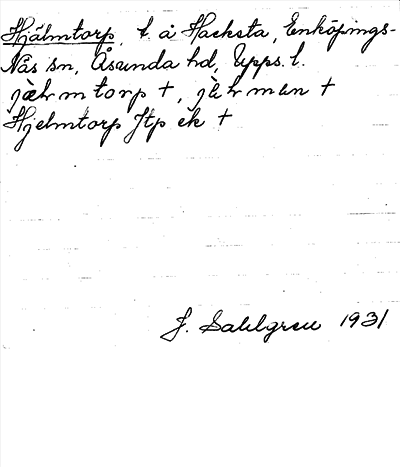 Hjälmtorp, t. å Hacksta, Enköpings-
Näs sn, Åsunda hd, Upps. l.
torp +, +
Hjelmtorp Jtp ek +
J. Sahlgren 1931